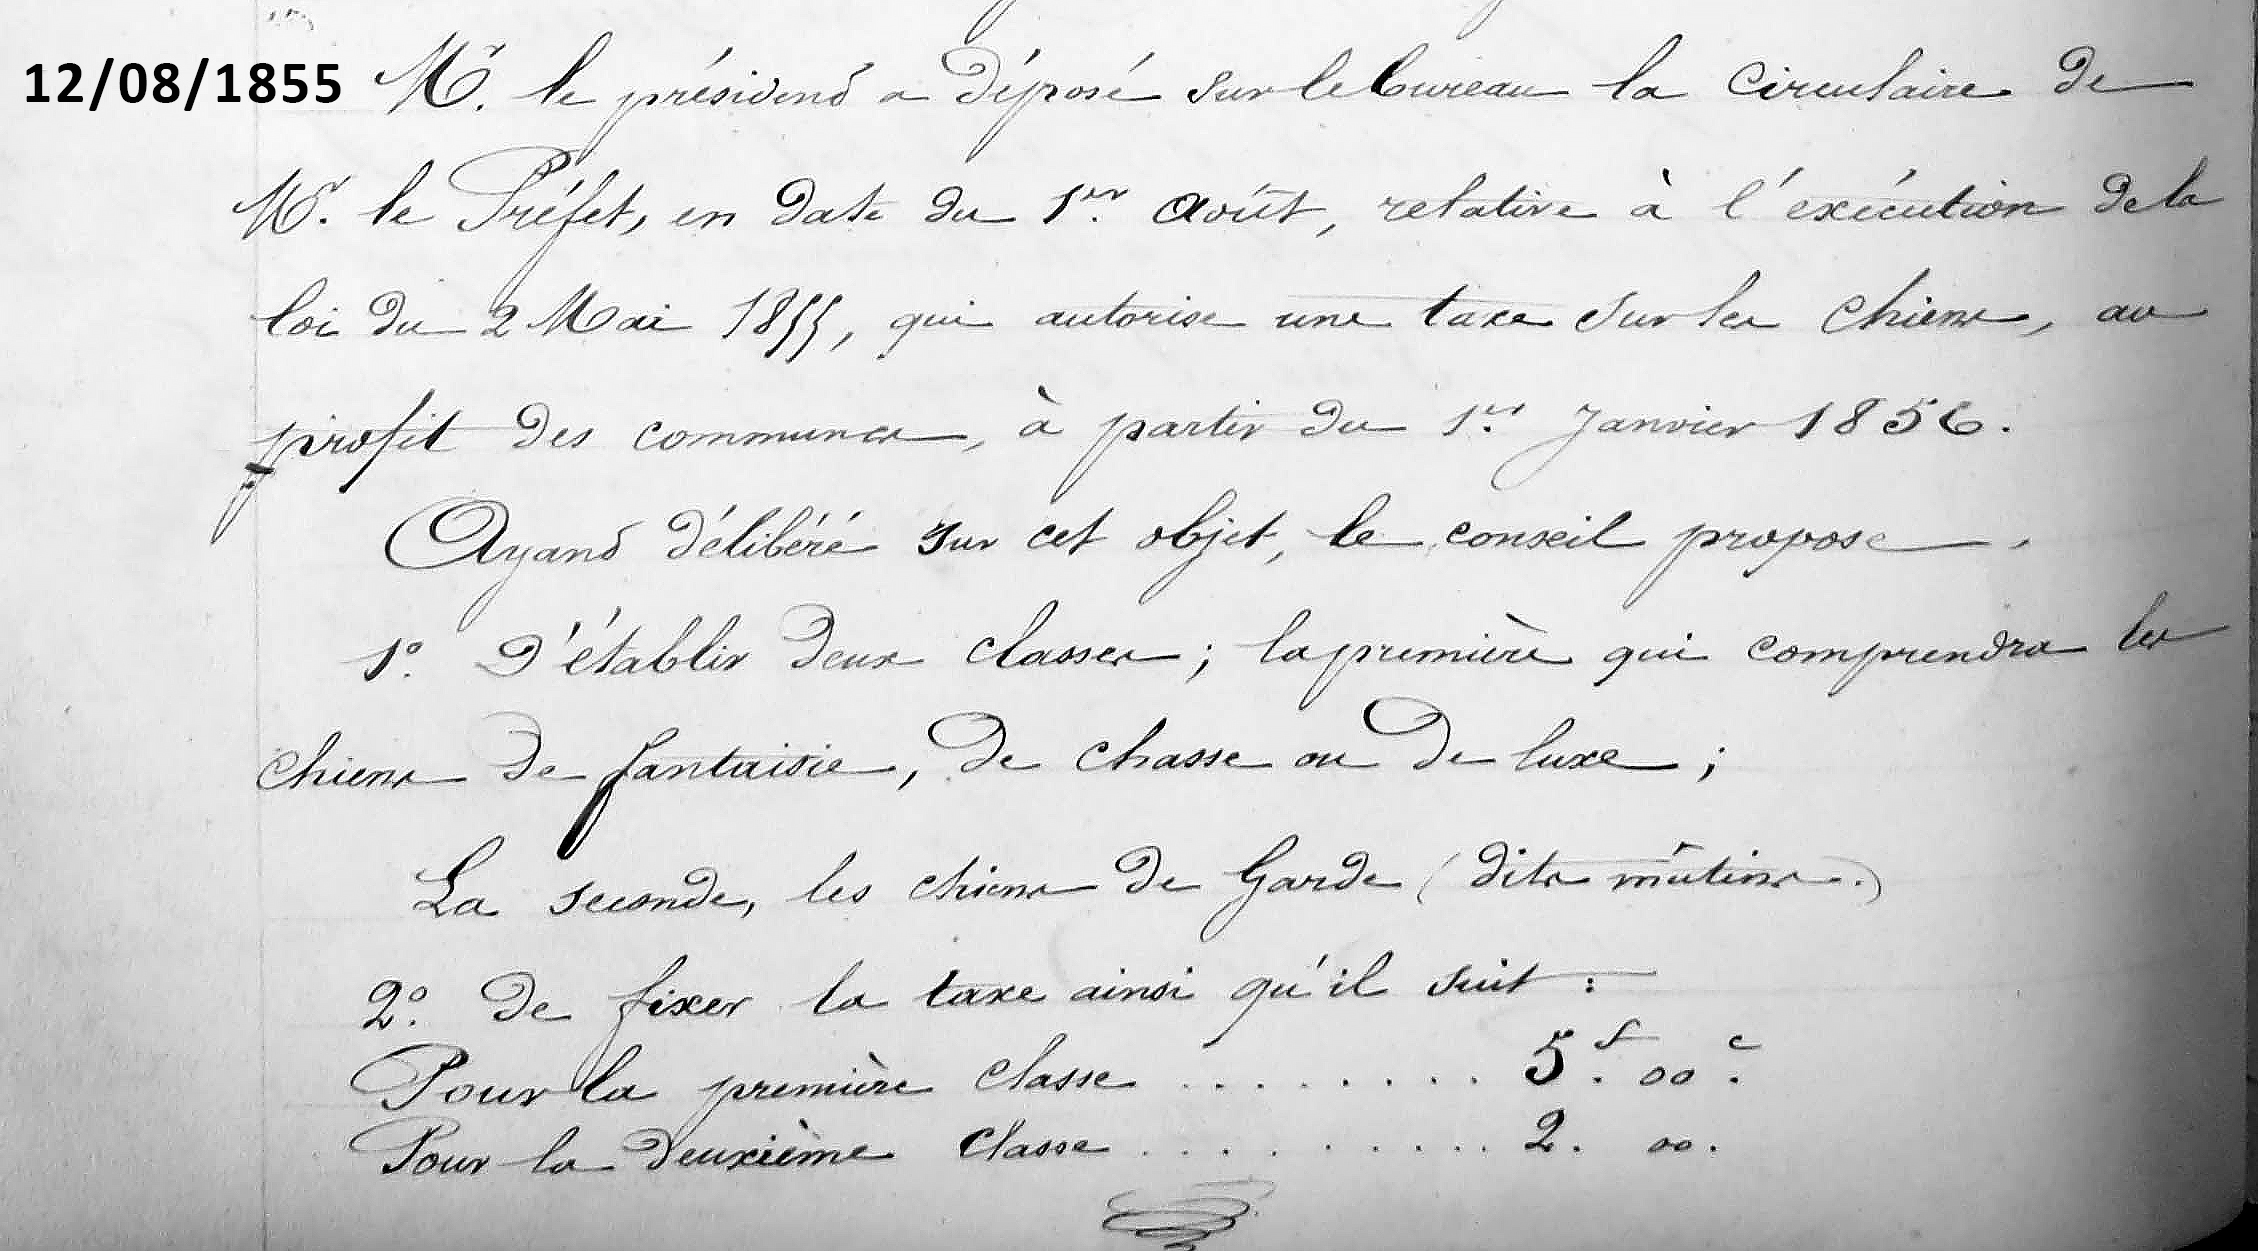 12/08/1855
Mr. le président a déposé sur le bureau la circulaire de
Mr. le Préfet, en date du 1er. août, relative à l'exécution de la
loi du 2 Mai 1855, qui autorise une taxe sur les chiens, au
profit des communes, à partir du 1er. Janvier 1856.
Ayant délibéré sur cet objet, le conseil propose.
1º. D'établir deux classes ; la première qui comprendra les
chiens de fantaisie, de chasse ou de luxe ;
La seconde, les chiens de Garde (dits mâtins.)
2º. De fixer la taxe ainsi qu'il suit :
Pour la première classe ......... 5f. 00c.
Pour la deuxième classe .......... 2. 00.